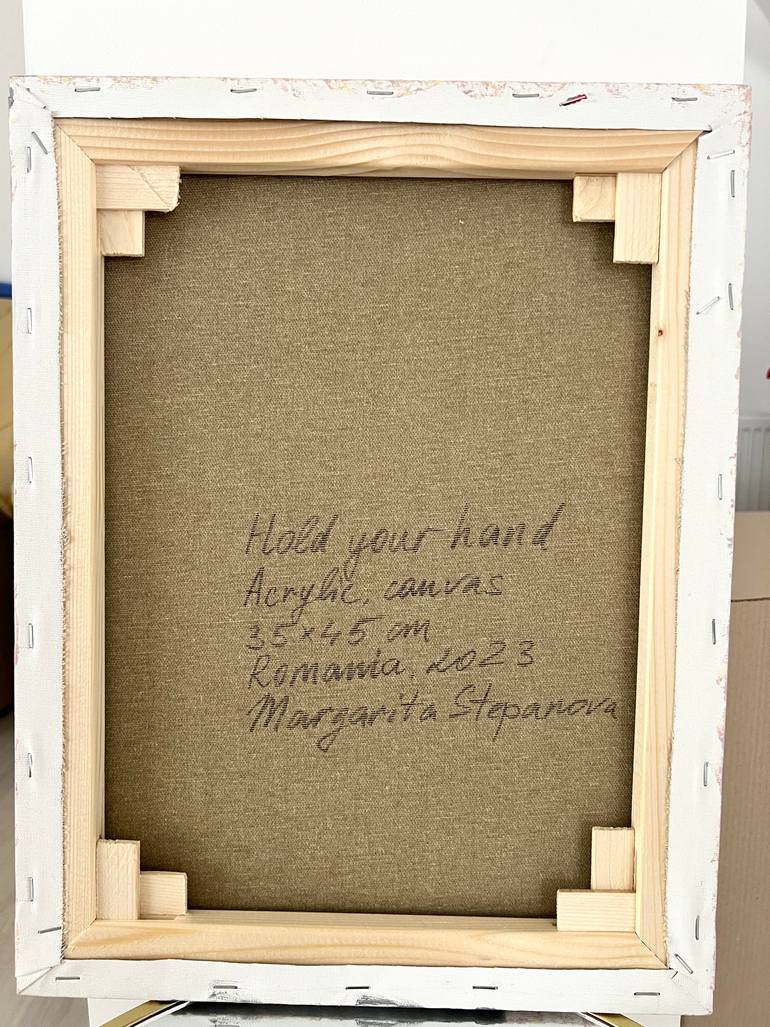 Hold your hand
Acrylic, canvas
35×45 cm
Romania, 2023
Margarita Stepanova